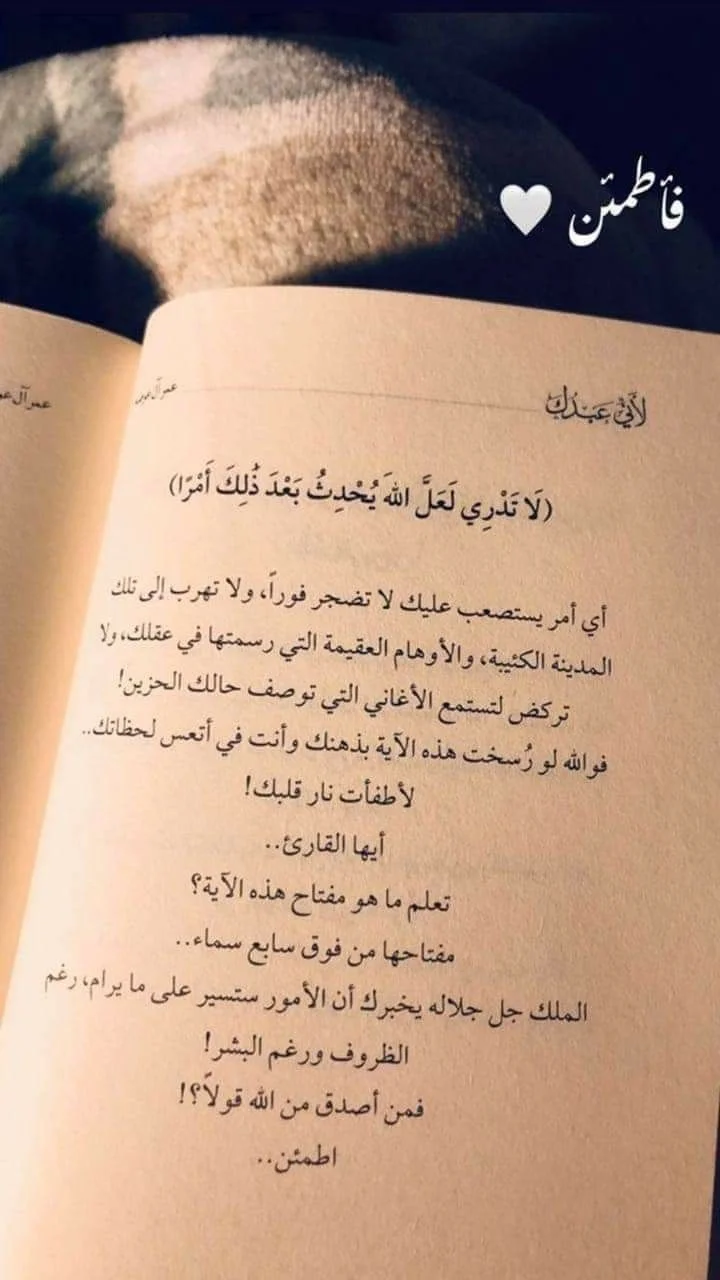 فأطمئن
لأني عبدك
(لَا تَدْرِي لَعَلَّ اللهَ يُحْدِثُ بَعْدَ ذَٰلِكَ أَمْرًا)
أي أمر يستصعب عليك لا تضجر فوراً، ولا تهرب إلى تلك
المدينة الكئيبة، والأوهام العقيمة التي رسمتها في عقلك، ولا
تركض لتستمع الأغاني التي توصف حالك الحزين!
فوالله لو رُسخت هذه الآية بذهنك وأنت في أتعس لحظاتك..
لأطفأت نار قلبك!
أيها القارئ..
تعلم ما هو مفتاح هذه الآية؟
مفتاحها من فوق سابع سماء..
الملك جل جلاله يخبرك أن الأمور ستسير على ما يرام، رغم
الظروف ورغم البشر!
فمن أصدق من الله قولاً؟!
اطمئن..